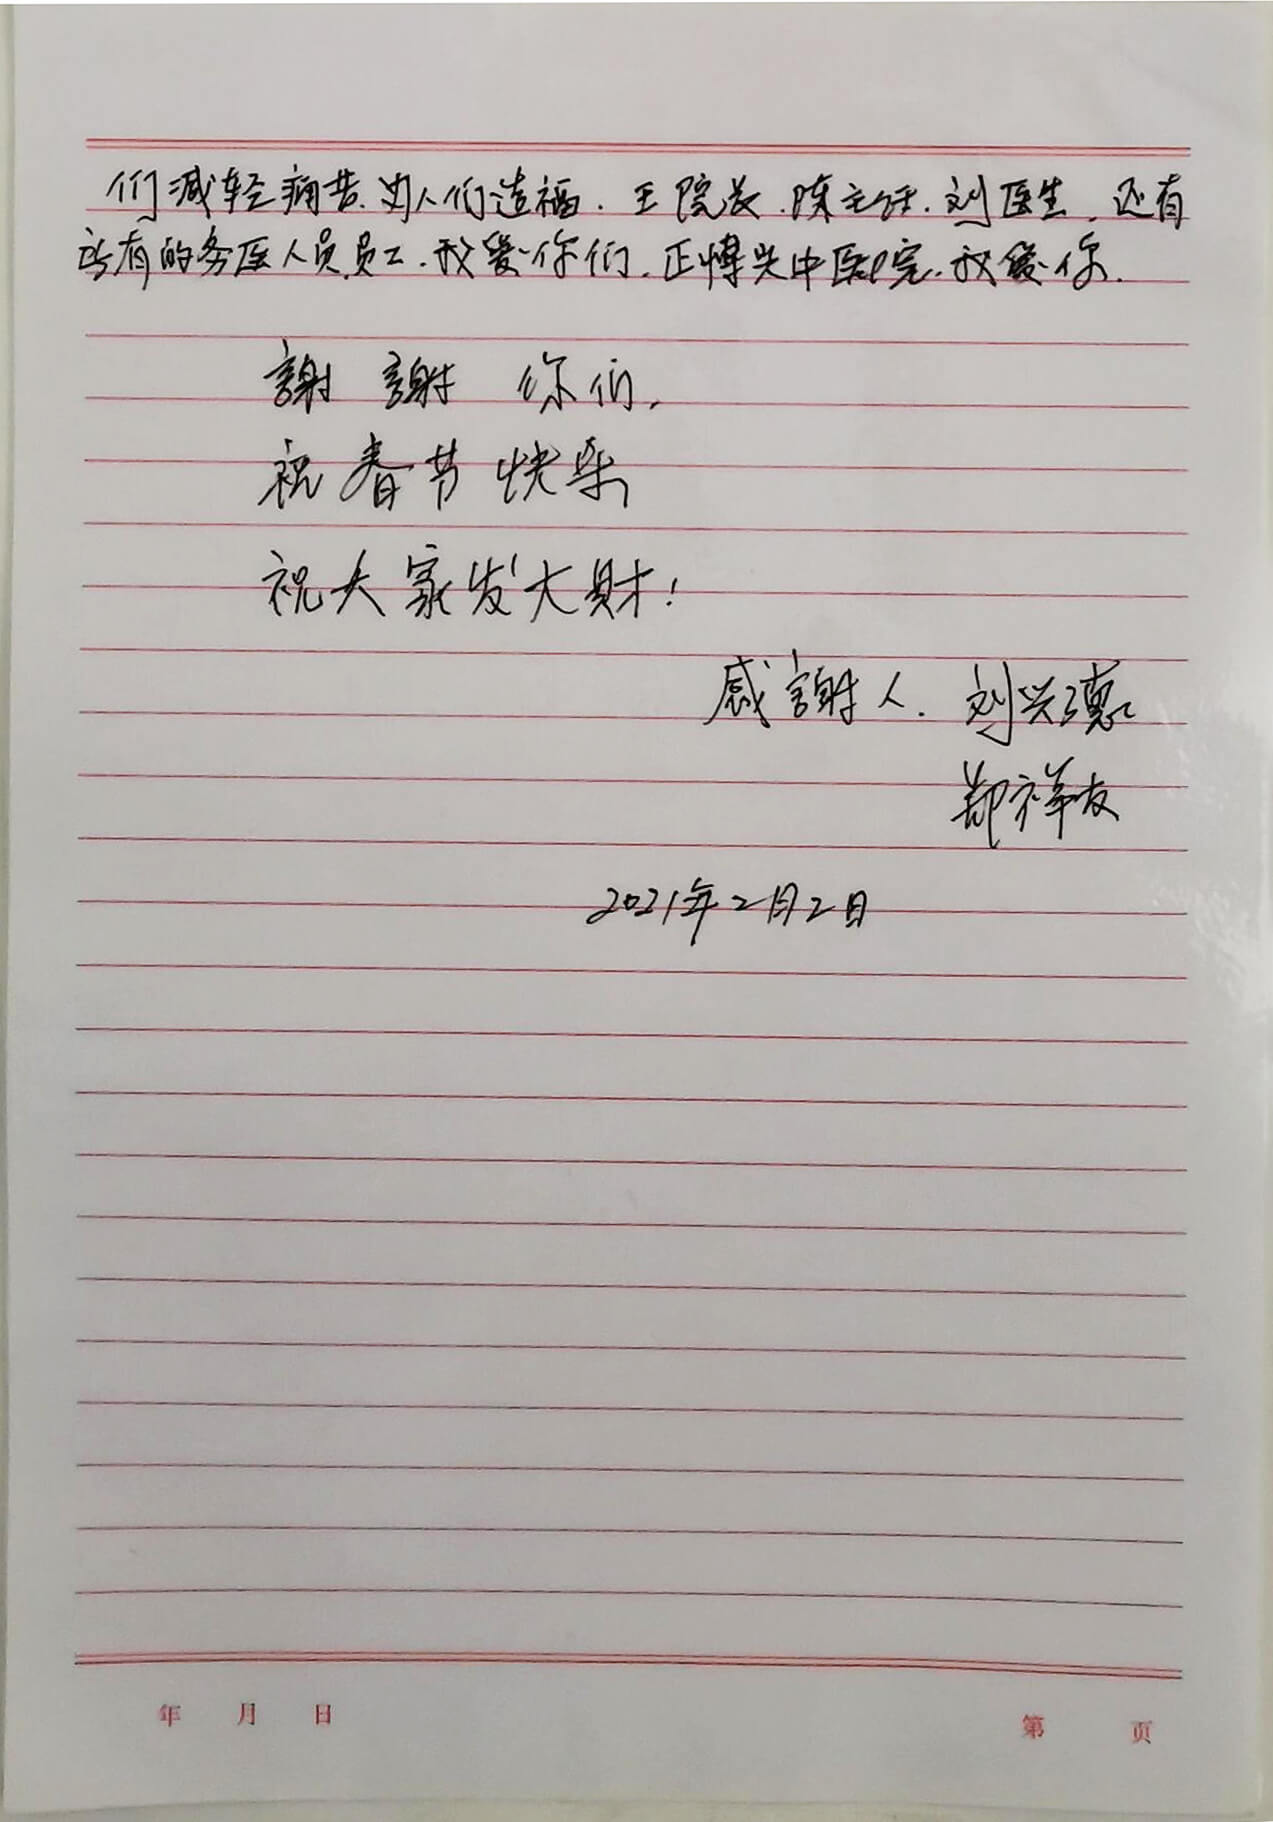 们减轻痛苦、为人们造福.王院长.陈主任.刘医生.还有
所有的务医人员.员工.我爱你们.正博兴中医院.我爱你.
謝謝你们.
祝春节快乐
祝大家发大財!
感謝人.刘兴德
郑祥友
2021年2月2日
年 月 日
第 页